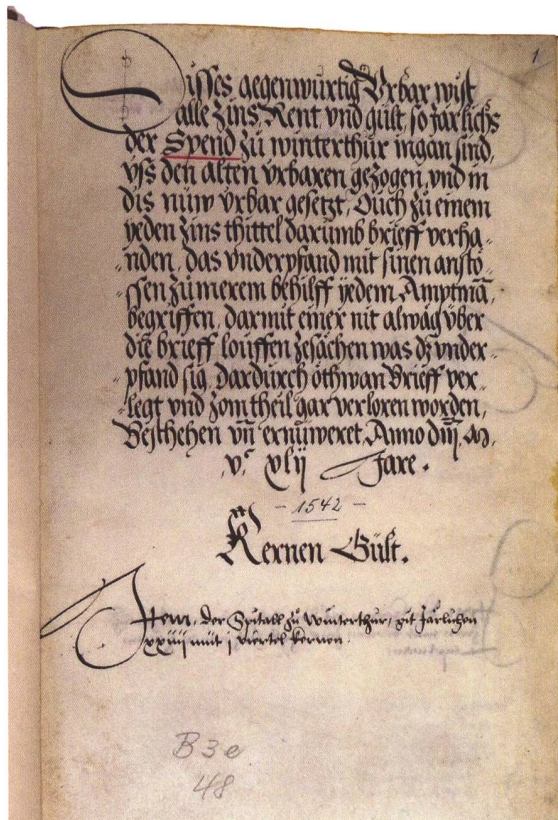 1
Disses gegenwürtig Vrbar wÿst
alle Zins, Rent vnd gült, so Järlichs
der Spend zů winterthur ingan sind,
vss den alten vrbaren gezogen, vnd in
dis nüw vrbar gesetzt, Ouch zů einem
yeden zins thittel darumb brieff verha⸗
⸗nden, das vnderpfand mit sinen anstö⸗
⸗ssen zů merem behilff yedem Amptmā,
begriffen, darmit einer nit alwäg über
die brieff louffen zesächen was dz vnder⸗
⸗pfand sig, dardurch öthwan Brieff ver⸗
⸗legt vnd zom theil gar verloren worden,
Beschehen vn̄ ernüweret, Anno dnī, M,
vͨ xlij Jare.
- 1542 -
Kernen Gült.
Item, der Spitall zů Winterthur, git Järlichen
xxiiij müt j viertel kernen
B3e
48